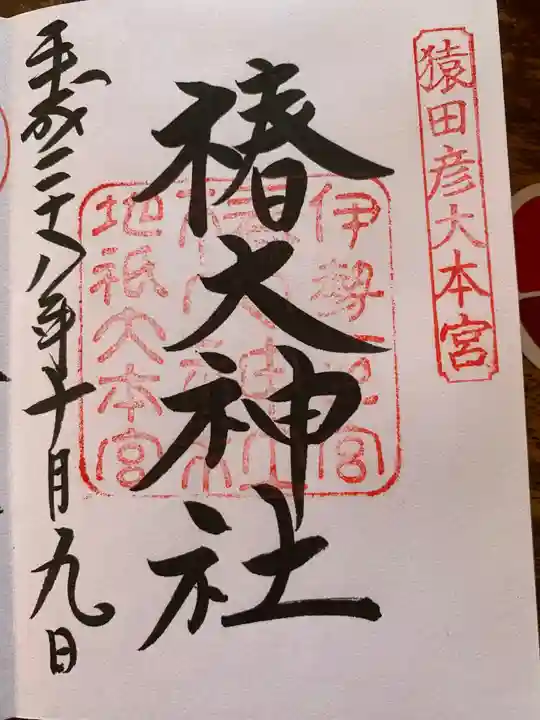 猿田彦大本宮
伊勢一之宮
椿大神社
地祇大本宮
椿大神社
平成二十八年十月九日